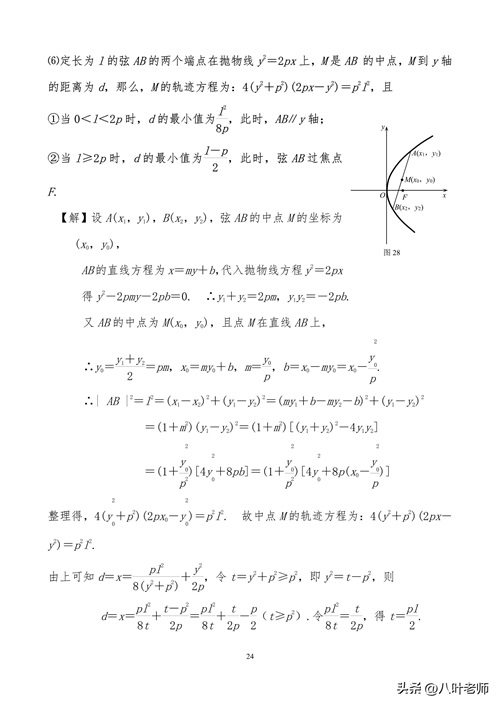 ⑹定长为 l 的弦 AB 的两个端点在抛物线 y²=2px 上，M 是 AB 的中点，M 到 y 轴
的距离为 d，那么，M 的轨迹方程为：4(y²+p²)(2px-y²)=p²l²，且
①当 0<l<2p 时，d 的最小值为 l²/8p，此时，AB∥y 轴；
②当 l≥2p 时，d 的最小值为 (l-p)/2，此时，弦 AB 过焦点
F.
y
A(x₁，y₁)
M(x₀，y₀)
O F x
B(x₂，y₂)
图 28
【解】设 A(x₁，y₁)，B(x₂，y₂)，弦 AB 的中点 M 的坐标为
(x₀，y₀)，
AB 的直线方程为 x=my+b，代入抛物线方程 y²=2px
得 y²-2pmy-2pb=0. ∴y₁+y₂=2pm，y₁y₂=-2pb.
又 AB 的中点为 M(x₀，y₀)，且点 M 在直线 AB 上，
∴y₀=(y₁+y₂)/2=pm，x₀=my₀+b，m=y₀/p，b=x₀-my₀=x₀-y₀²/p.
∴| AB |²=l²=(x₁-x₂)²+(y₁-y₂)²=(my₁+b-my₂-b)²+(y₁-y₂)²
=(1+m²)(y₁-y₂)²=(1+m²)[(y₁+y₂)²-4y₁y₂]
=(1+y₀²/p²)[4y₀²+8pb]=(1+y₀²/p²)[4y₀²+8p(x₀-y₀²/p)]
整理得，4(y₀²+p²)(2px₀-y₀²)=p²l². 故中点 M 的轨迹方程为：4(y²+p²)(2px-
y²)=p²l².
由上可知 d=x=pl²/8(y²+p²)+y²/2p，令 t=y²+p²≥p²，即 y²=t-p²，则
d=x=pl²/8t+(t-p²)/2p=pl²/8t+t/2p-p/2（t≥p²）.令 pl²/8t=t/2p，得 t=pl/2.
24
头条 @八叶老师